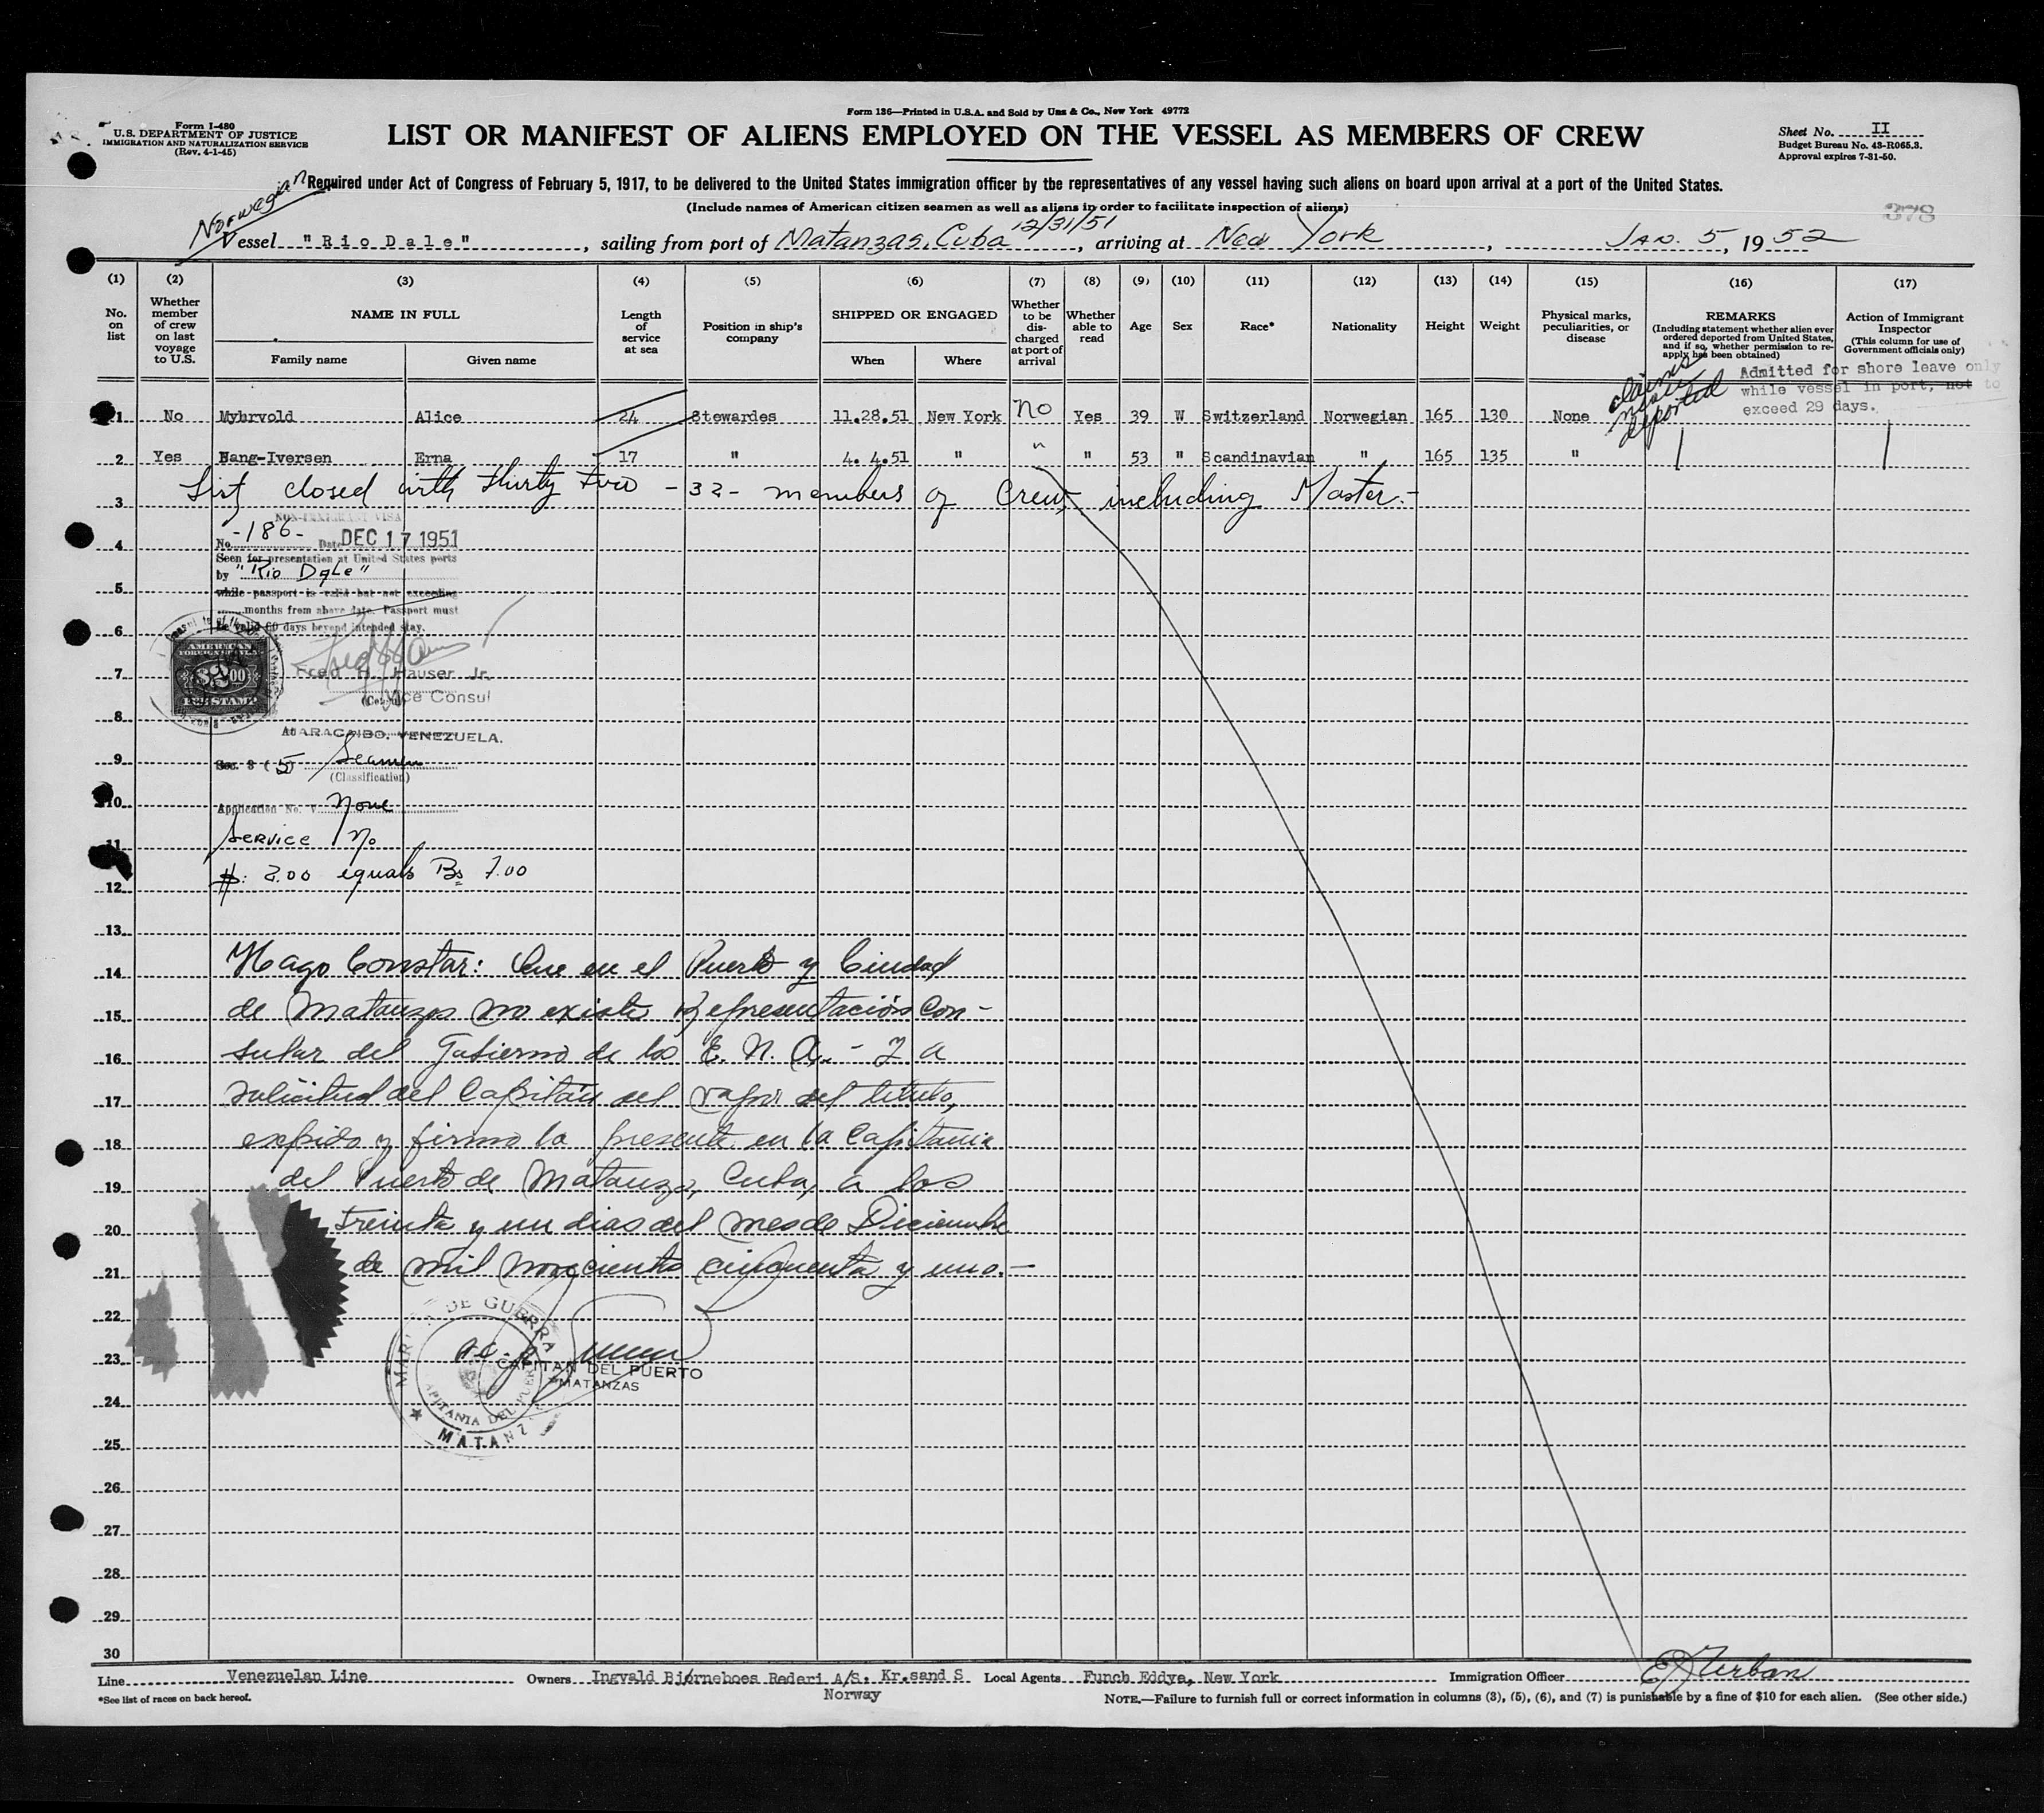 Form 136—Printed in U.S.A. and Sold by Unz & Co., New York 49772
Form I-480
U.S. DEPARTMENT OF JUSTICE
IMMIGRATION AND NATURALIZATION SERVICE
(Rev. 4-1-45)
LIST OR MANIFEST OF ALIENS EMPLOYED ON THE VESSEL AS MEMBERS OF CREW
Sheet No. II
Budget Bureau No. 43-R065.3.
Approval expires 7-31-50.
Required under Act of Congress of February 5, 1917, to be delivered to the United States immigration officer by the representatives of any vessel having such aliens on board upon arrival at a port of the United States.
(Include names of American citizen seamen as well as aliens in order to facilitate inspection of aliens)
378
Norwegian
12/31/51
Vessel "Rio Dale", sailing from port of Matanzas, Cuba, arriving at New York, Jan. 5, 1952
(1) (2) (3) (4) (5) (6) (7) (8) (9) (10) (11) (12) (13) (14) (15) (16) (17)
No. on list
Whether member of crew on last voyage to U.S.
NAME IN FULL
Family name Given name
Length of service at sea
Position in ship's company
SHIPPED OR ENGAGED
When Where
Whether to be discharged at port of arrival
Whether able to read
Age
Sex
Race*
Nationality
Height
Weight
Physical marks, peculiarities, or disease
REMARKS
(Including statement whether alien ever ordered deported from United States, and if so, whether permission to reapply has been obtained)
Action of Immigrant Inspector
(This column for use of Government officials only)
claims never deported
Admitted for shore leave only
while vessel in port, not to
exceed 29 days.
1 No Myhrvold Alice 24 Stewardes 11.28.51 New York No Yes 39 W Switzerland Norwegian 165 130 None
2 Yes Bang-Iversen Erna 17 " 4. 4.51 " " " 53 " Scandinavian " 165 135 "
3 List closed with thirty two - 32 - members of Crew, including Master.-
NON-IMMIGRANT VISA
No. -186- Date DEC 17 1951
4
Seen for presentation at United States ports
by "Rio Dale"
5 while passport is valid but not exceeding
months from above date. Passport must
6 be valid 60 days beyond intended stay.
AMERICAN
FOREIGN SERVICE
$2.00
FEE STAMP
7 Fred H. Hauser Jr.
Vice Consul
8
At MARACAIBO, VENEZUELA.
9 Sec. 3 (5) Seamen
(Classification)
10 Application No. V None
11 Service No
12 $: 2.00 equals Bs 7.00
13
14 Hago Constar: Que en el Puerto y Ciudad
15 de Matanzas no existe Representación Con-
16 sular del Gobierno de los E. U. A.- Y a
17 solicitud del Capitán del vapor del título,
18 expido y firmo la presente en la Capitanía
19 del Puerto de Matanzas, Cuba, a los
20 treinta y un dias del mes de Diciembre
21 de mil novecientos cincuenta y uno.-
22
MARINA DE GUERRA
23 CAPITAN DEL PUERTO
MATANZAS
CAPITANIA DEL PUERTO
24
MATANZAS
25
26
27
28
29
30
Line Venezuelan Line Owners Ingvald Bjørneboes Rederi A/S. Kr.sand S Local Agents Funch Eddye, New York Immigration Officer E J Urban
Norway
*See list of races on back hereof.
NOTE.—Failure to furnish full or correct information in columns (3), (5), (6), and (7) is punishable by a fine of $10 for each alien. (See other side.)